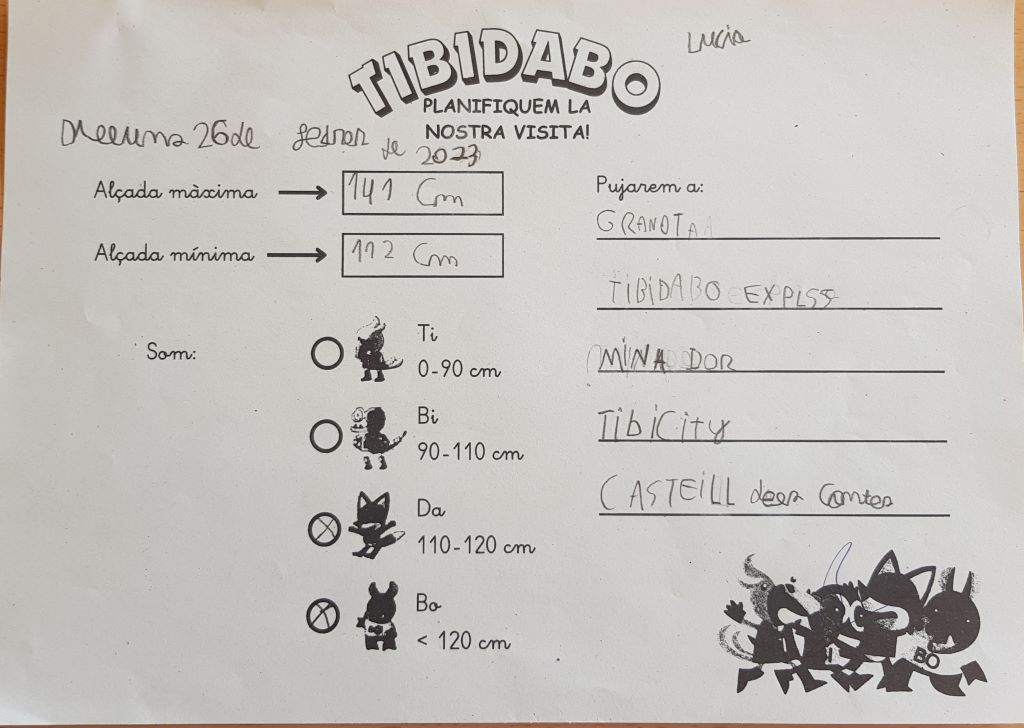 Lucia
TIBIDABO
PLANIFIQUEM LA
NOSTRA VISITA!
26 de
de
2023
Alçada màxima 141 Cm
Alçada mínima 112 Cm
Som:
Ti
0-90 cm
Bi
90-110 cm
Da
110-120 cm
Bo
< 120 cm
Pujarem a:
GRANOTA
TIBIDABO EXPLSS
MINADOR
TibiCity
CASTEILL dees Contes
BO